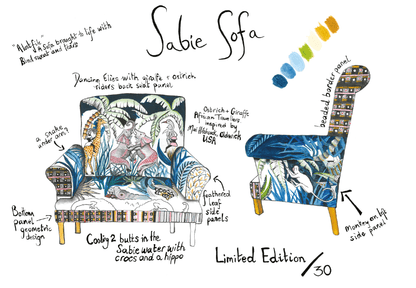 Sabie Sofa
A sofa brought to life with
Blood sweat and tears
Dancing Elies with giraffe + ostrich
riders back seat panel
Ostrich + Giraffe
African Travellers
inspired by
USA
a snake
under
beaded border panel
feathered
leaf
side
panels
Bottom
panel
geometric
design
Cooling 2 butts in the
Sabie water with
crocs and a hippo
monkey on lp
side panel
Limited Edition /30